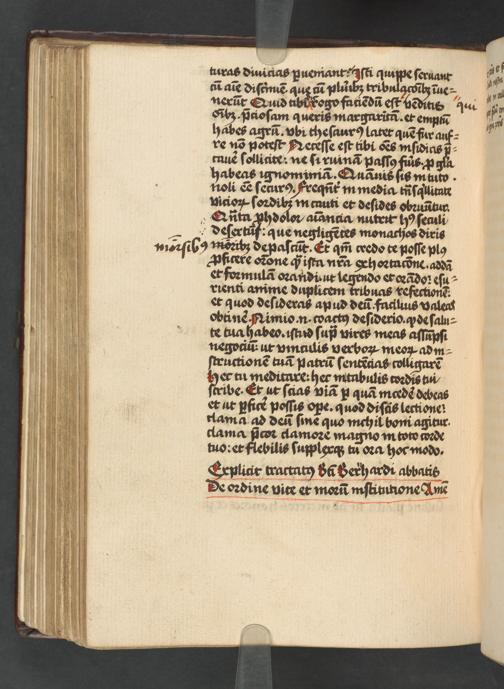 turas diuicias ꝑueniant. Isti quippe seruant
cū aūe discrimīe que cū pluribꝫ tribulacōibꝫ inue-
nerūt Quid tibi rogo faciendū est venditis “qui
oībꝫ p̄ciosam queris margaritā. et emptū
habes agrū. vbi thesaurꝰ latet quē fur auf-
re nō potest Necesse est tibi oēs insidias p̄-
cauē sollicite: ne si ruinam passꝰ fūis. ꝓ gl̄a
habeas ignominiam. Quāuis sis in tuto.
noli eē securꝰ. Freqn̄t' in media tn̄sq̄llitate
vicioꝝ sordibꝫ incauti et desides obruūtur.
Qn̄ta ꝓhdolor auaricia nutrit hꝰ seculi
desertus: que negligētes monachos diris
morsibꝰ moribꝫ depascūt. Et qm̄ credo te posse plꝰ
ꝓficere orōne q̄ ista nr̄a exhortacōne. addā
et formulā orandi. ut legendo et orādo: esu-
rienti anime duplicem tribuas refectionē:
et quod desideras apud deū. facilius valeas
obtinē. Nimio .n. coactꝰ desiderio. qd̓ de salu-
te tua habeo. istud suꝑ vires meas assūpsi
negociū: ut vinculis verboꝝ meoꝝ ad in-
structionē tuā patrū sentēcias colligarē
Hec tu meditare: hec in tabulis cordis tui
scribe. Et ut scias viā ꝑ quā incedē debeas
et ut ꝑficē possis ope. quod discis lectione:
clama ad deū sine quo nichil boni agitur.
clama p̄cor clamore magno in toto corde
tuo: et flebilis supplexqꝫ tu ora hoc modo.
Explicit tractatꝰ bt̄i Berhardi abbatis
De ordine vite et morū institutione Amē